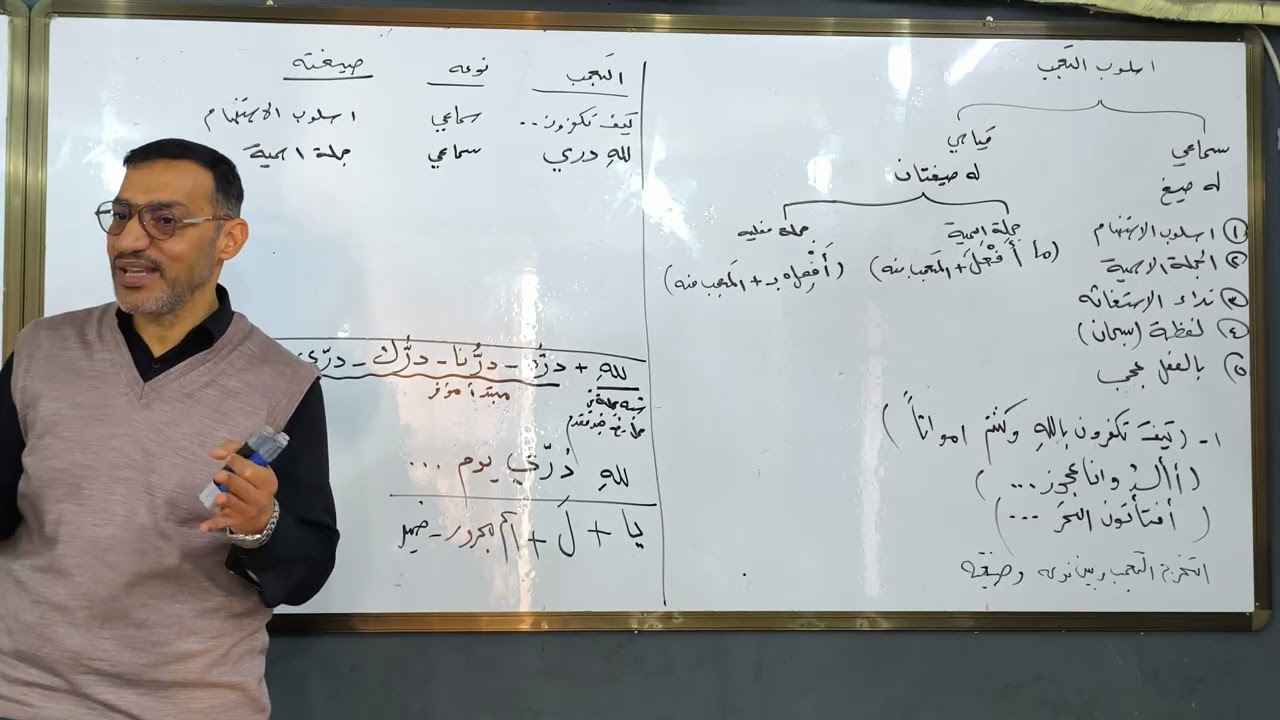 اسلوب التعجب
سماعي
قياسي
له صيغ
له صيغتان
جملة اسمية
جملة فعلية
(ما أَفْعَلَ + المتعجب منه)
(أَفْعِلْ بـ + المتعجب منه)
① اسلوب الاستفهام
② الجملة الاسمية
③ نداء الاستغاثة
④ لفظة (سبحان)
⑤ بالفعل عجب
١- (كيفَ تكفرون باللهِ وكنتم امواتاً)
(أألدُ وانا عجوز ...)
(أفتأتون السحرَ ...)
استخرج التعجب وبين نوعه وصيغته
التعجب نوعه صيغته
كيف تكفرون.. سماعي اسلوب الاستفهام
للهِ دري سماعي جملة اسمية
للهِ + درُّ - درُّنا - درُّك - درّي
شبه جملة في مبتدأ مؤخر
محل رفع خبر مقدم
للهِ دُرّي يوم ...
يا + لَ + اسم مجرور - ضمير